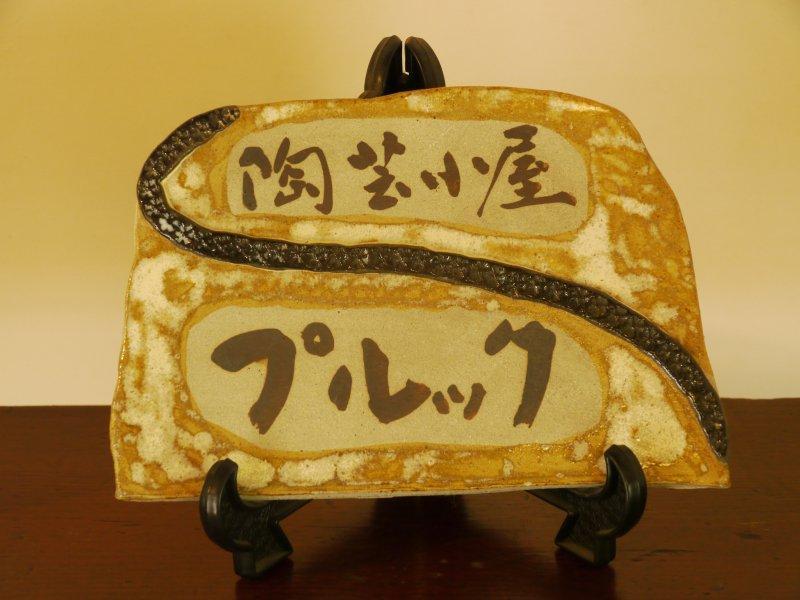 陶芸小屋
プルック